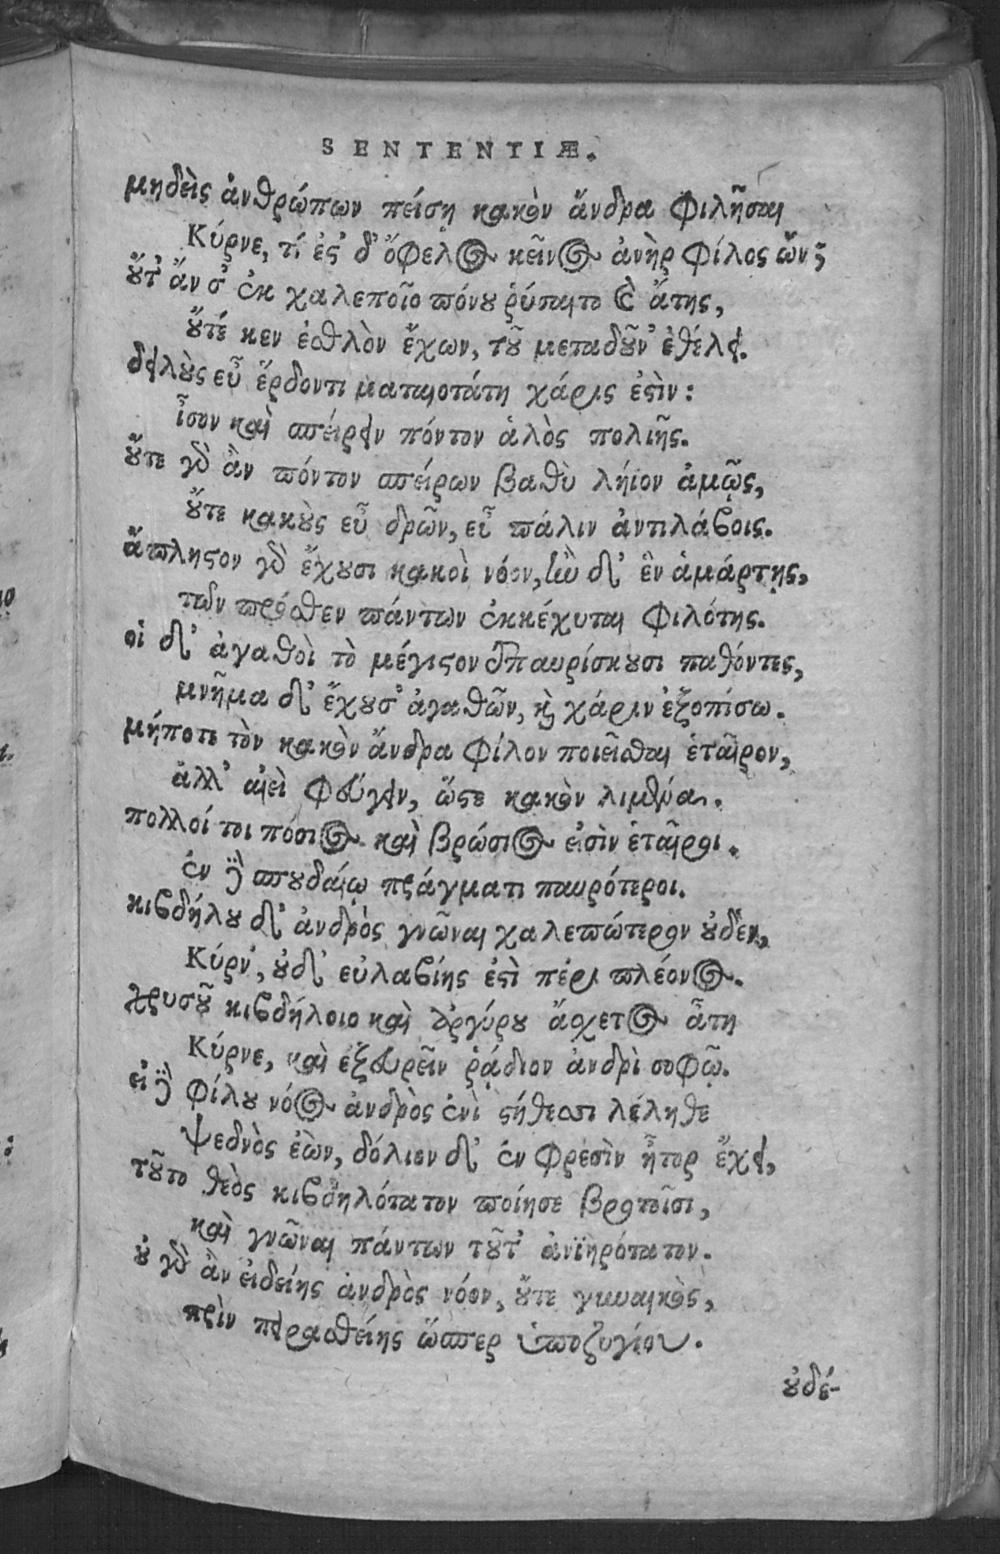 SENTENTIÆ.
μηδεὶς ἀνθρώπων πείσῃ κακὸν ἄνδρα φιλῆσαι
Κύρνε, τί ἐς' δ' ὄφελος κεῖνος ἀνὴρ φίλος ὤν;
οὔτ' ἄν σ' ἐκ χαλεποῖο πόνου ῥύσαιτο καὶ ἄτης,
οὔτέ κεν ἐσθλὸν ἔχων, τοῦ μεταδοῦν' ἐθέλει.
δειλοὺς εὖ ἕρδοντι ματαιοτάτη χάρις ἐστὶν:
ἶσον καὶ σπείρειν πόντον ἁλὸς πολιῆς.
οὔτε γὰρ ἂν πόντον σπείρων βαθὺ λήϊον ἀμῷς,
οὔτε κακοὺς εὖ δρῶν, εὖ πάλιν ἀντιλάβοις.
ἄπληστον γὰρ ἔχουσι κακοὶ νόον, ἢν δ' ἓν ἁμάρτῃς,
τῶν πρόσθεν πάντων ἐκκέχυται φιλότης.
οἱ δ' ἀγαθοὶ τὸ μέγιστον ἐπαυρίσκουσι παθόντες,
μνῆμα δ' ἔχουσ' ἀγαθῶν, καὶ χάριν ἐξοπίσω.
μήποτε τὸν κακὸν ἄνδρα φίλον ποιεῖσθαι ἑταῖρον,
ἀλλ' αἰεὶ φεύγειν, ὥστε κακὸν λιμένα.
πολλοί τοι πόσιος καὶ βρώσιος εἰσὶν ἑταῖροι.
ἐν δὲ σπουδαίῳ πράγματι παυρότεροι.
κιβδήλου δ' ἀνδρὸς γνῶναι χαλεπώτερον οὐδέν,
Κύρν', οὐδ' εὐλαβίης ἐστὶ πέρι πλέονος.
χρυσοῦ κιβδήλοιο καὶ ἀργύρου ἄσχετος ἄτη
Κύρνε, καὶ ἐξευρεῖν ῥᾴδιον ἀνδρὶ σοφῷ.
εἰ δὲ φίλου νόος ἀνδρὸς ἐνὶ στήθεσσι λέληθε
ψεδνὸς ἐὼν, δόλιον δ' ἐν φρεσὶν ἦτορ ἔχει,
τοῦτο θεὸς κιβδηλότατον ποίησε βροτοῖσι,
καὶ γνῶναι πάντων τοῦτ' ἀνιηρότατον.
οὐ γὰρ ἂν εἰδείης ἀνδρὸς νόον, οὔτε γυναικὸς,
πρὶν πειραθείης ὥσπερ ὑποζυγίου.
οὐδέ-